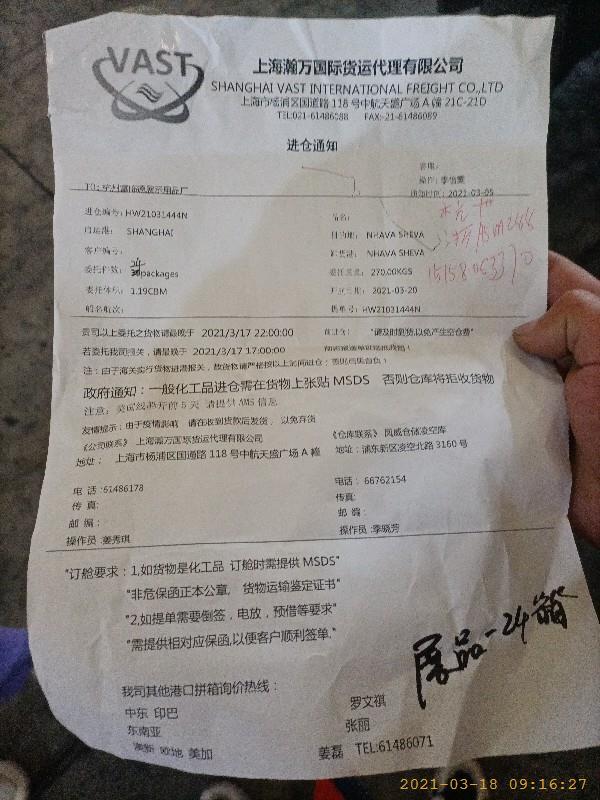 VAST
上海瀚万国际货运代理有限公司
SHANGHAI VAST INTERNATIONAL FREIGHT CO.,LTD
上海市杨浦区国道路 118 号中航天盛广场 A 幢 21C-21D
TEL:021-61486088 FAX:-21-61486089
进仓通知
客审:
TO: 展示用品厂
操作: 李怡
2021-03-05
进仓编号: HW21031444N
品名:
启运港: SHANGHAI
目的港: NHAVA SHEVA
客户编号:
卸货港: NHAVA SHEVA
委托件数: 24 packages
委托重量: 270.00KGS
委托体积: 1.19CBM
开航日期: 2021-03-20
船名航次:
提单号: HW21031444N
贵司以上委托之货物请最晚于 2021/3/17 22:00:00 前进仓: "请及时到货,以免产生空仓费"
若委托我司报关,请最晚于 2021/3/17 17:00:00
注:由于海关实行货物进港报关,故货物请严格按以上时间进仓;否则后果自负!
政府通知:一般化工品进仓需在货物上张贴 MSDS 否则仓库将拒收货物
注意: 美国线离开前 5 天 请提供 AMS 信息
友情提示:由于疫情影响 请在收到货款后发货, 以免弃货
《公司联系》 上海瀚万国际货运代理有限公司
《仓库联系》 风威仓储凌空库
地址: 上海市杨浦区国通路 118 号中航天盛广场 A 幢
地址: 浦东新区凌空北路 3160 号
电 话 :61486178
电话: 66762154
传 真:
传真:
邮 编:
邮 编:
操作员:姜秀琪
操作员:季晓芳
"订舱要求:1,如货物是化工品 订舱时需提供 MSDS"
"非危保函正本公章, 货物运输鉴定证书"
"2,如提单需要倒签,电放,预借等要求"
"需提供相对应保函,以便客户顺利签单."
展品-24箱
我司其他港口拼箱询价热线:
中东 印巴 罗文祺
东南亚 张丽
澳新 欧地 美加 姜磊 TEL:61486071
2021-03-18 09:16:27